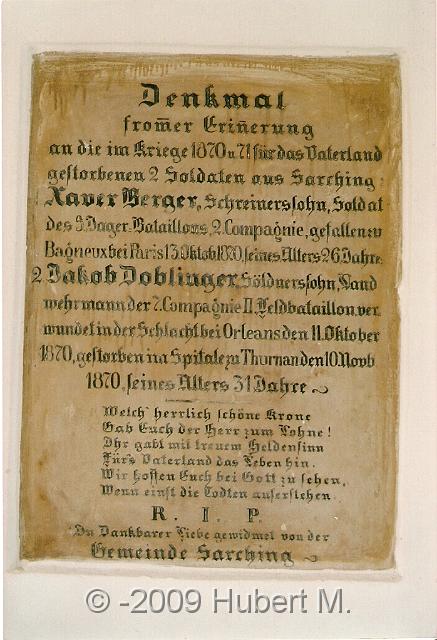 Denkmal
from̅er Erin̅erung
an die im Kriege 1870 u. 71 für das Vaterland
gestorbenen 2 Soldaten aus Sarching:
1. Xaver Berger, Schreinerssohn, Soldat
des 3. Jäger-Bataillons, 2. Compagnie, gefallen zu
Bagneux bei Paris 13. Oktob. 1870, seines Alters 26 Jahre.
2. Jakob Doblinger, Söldnerssohn, Land
wehrmann der 7. Compagnie II. Feldbataillon, ver
wundet in der Schlacht bei Orleans den 11. Oktober
1870, gestorben im Spitale zu Thurnan den 10. Novb.
1870, seines Alters 31 Jahre ~
Welch' herrlich schöne Krone
Gab Euch der Herr zum Lohne!
Ihr gabt mit treuem Heldensinn
Für's Vaterland das Leben hin.
Wir hoffen Euch bei Gott zu sehen,
Wenn einst die Todten auferstehen.
R. I. P.
In Dankbarer Liebe gewidmet von der
Gemeinde Sarching ~
© -2009 Hubert M.